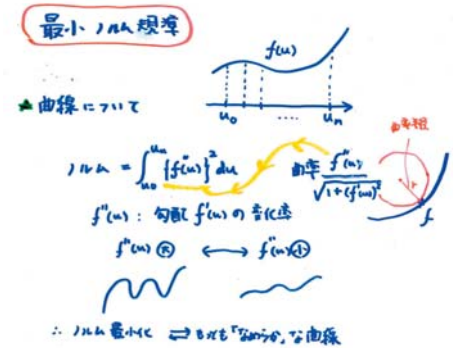 最小ノルム規準
f(u)
u₀ .... uₙ
▲曲線について
曲率
ノルム = ∫_{u₀}^{uₙ} {f''(u)}² du
曲率 f''(u) / √1+(f'(u))²
r
f
f''(u) : 勾配 f'(u) の変化率
f''(u) 大 ⟷ f''(u) 小
∴ ノルム最小化 ⇄ もっとも「なめらか」な曲線